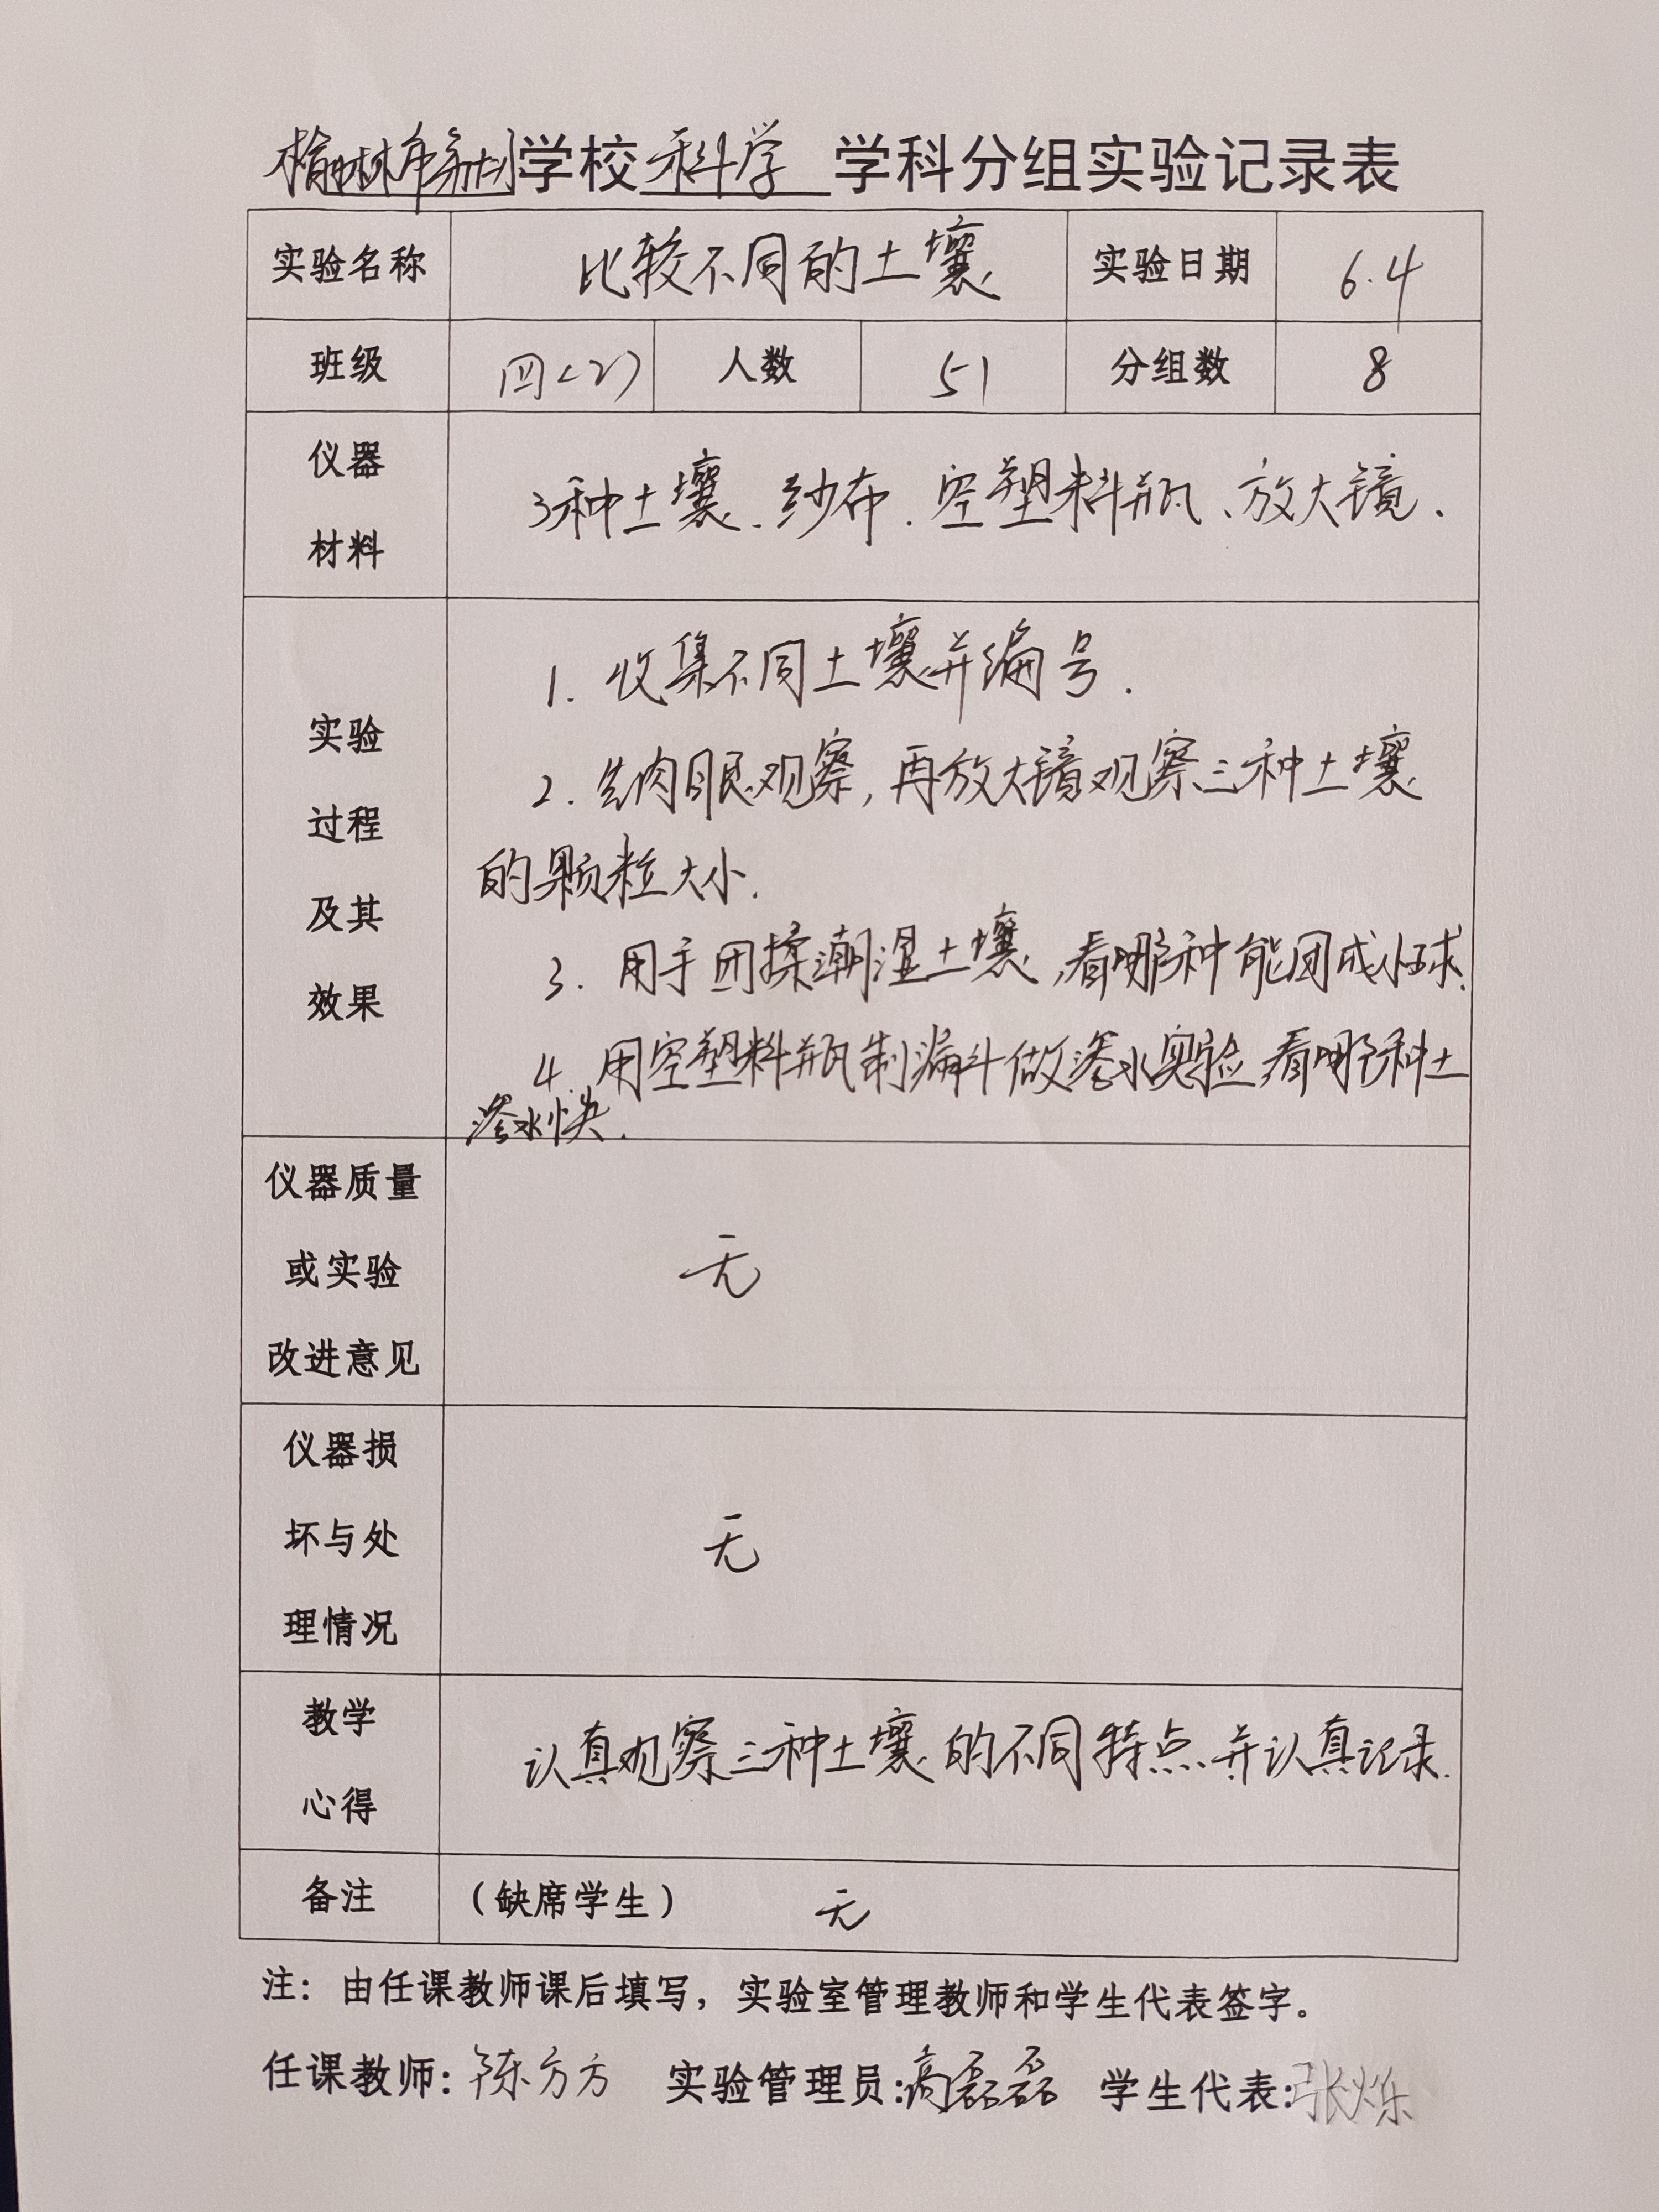 榆林市 学校 科学 学科分组实验记录表
实验名称 比较不同的土壤 实验日期 6.4
班级 四(2) 人数 51 分组数 8
仪器
材料
3种土壤、纱布、空塑料瓶、放大镜.
实验
过程
及其
效果
1. 收集不同土壤并编号.
2. 先肉眼观察,再放大镜观察三种土壤
的颗粒大小.
3. 用手团揉潮湿土壤,看哪种能团成小球.
4. 用空塑料瓶制漏斗做渗水实验,看哪种土
渗水快.
仪器质量
或实验
改进意见
无
仪器损
坏与处
理情况
无
教学
心得
认真观察三种土壤的不同特点,并认真记录.
备注 (缺席学生) 无
注:由任课教师课后填写,实验室管理教师和学生代表签字。
任课教师:陈方方 实验管理员:高磊磊 学生代表:张烁